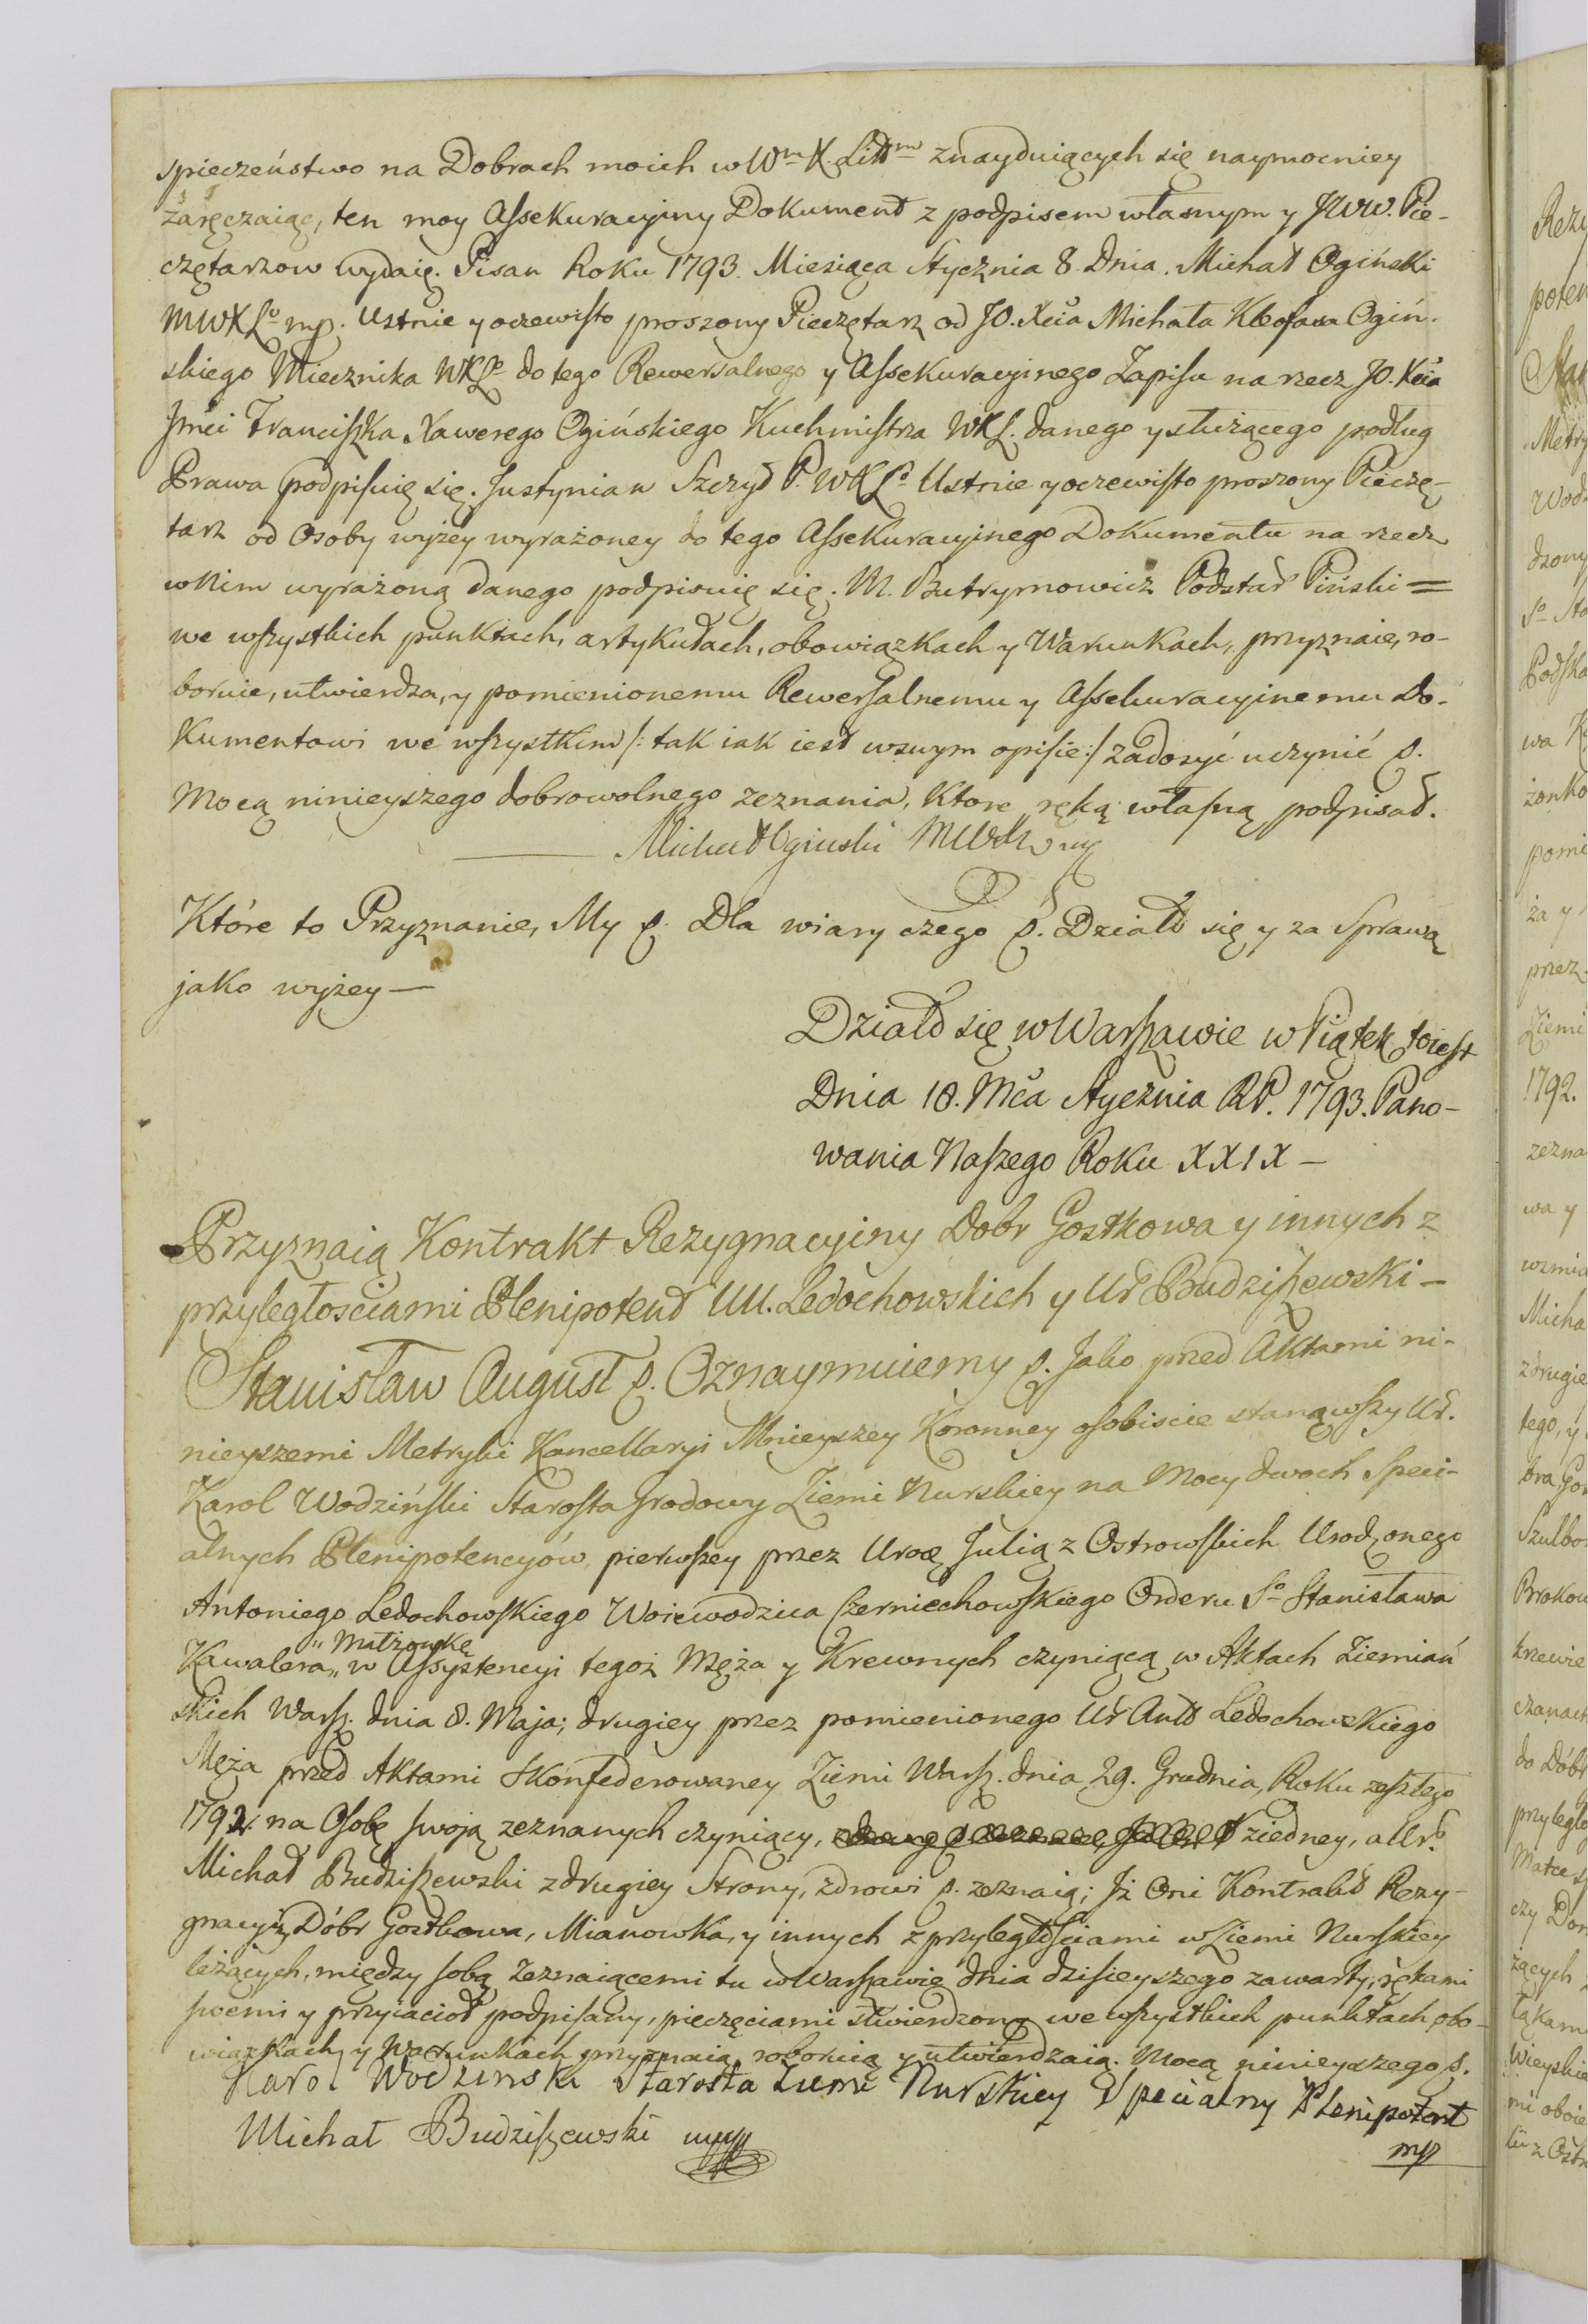 spieczeństwo na Dobrach moich w Wm X. Littm znayduiących się naymocniey
zaręczaiąc, ten moy Assekuracyiny Dokument z podpisem własnym y JWW. Pie-
czętarzow wydaię. Pisan Roku 1793. Miesiąca Stycznia 8. Dnia. Michał Ogiński
MWXLo mp. Ustnie y oczewisto proszony Pieczętarz od JO. Xcia Michała Kleofasa Ogiń-
skiego Miecznika WXLo do tego Rewersalnego y Assekuracyinego Zapisu na rzecz JO. Xcia
Jmci Franciszka Xawerego Ogińskiego Kuchmistrza WXL. danego y służącego podług
Prawa podpisuię się. Justynian Szczyt P. WXLo Ustnie y oczewisto proszony Pieczę-
tarz od Osoby wyżey wyrażoney do tego Assekuracyinego Dokumentu na rzecz
w Nim wyrażoną danego podpisuię się. M. Butrymowicz Podstar Piński =
we wszystkich punktach, artykułach, obowiązkach y Warunkach, przyznaie, ro-
boruie, utwierdza, y pomienionemu Rewersalnemu y Assekuracyinemu Do-
kumentowi we wszystkim /: tak iak iest w swym opisie :/ zadosyć uczynić p.
Mocą ninieyszego dobrowolnego zeznania, Ktore ręką własną podpisał.
Michał Ogiński MWXL mp
Które to Przyznanie, My p. Dla wiary czego p. Działo się y za Sprawą
jako wyżey —
Działo się w Warszawie w Piątek to iest
Dnia 18. Mca Stycznia RP. 1793. Pano-
wania Naszego Roku XXIX —
Przyznaią Kontrakt Rezygnacyiny Dobr Gostkowa y innych z
przyległosciami Plenipotent UU. Ledochowskich y Ur Budziszewski —
Stanisław August p. Oznaymuiemy p. Jako przed Aktami ni-
nieyszemi Metryki Kancellaryi Mnieyszey Koronney osobiscie stanąwszy Ur.
Karol Wodziński Starosta Grodowy Ziemi Nurskiey na Mocy dwoch Speci-
alnych Plenipotencyów, pierwszey przez Uroę Julią z Ostrowskich Urodzonego
Antoniego Ledochowskiego Woiewodzica Czerniechowskiego Orderu So Stanisława
Kawalera „ Małżonkę „ w Assystencyi tegoż Męża y Krewnych czyniącą w Aktach Ziemiań
skich Warsz. dnia 8. Maja; drugiey przez pomienionego Ur Anto Ledochowskiego
Męża przed Aktami Skonfederowaney Ziemi Warsz. dnia 29. Grudnia, Roku zeszłego
1792. na Osobę swoją zeznanych czyniący, z iedney, a Ur.
Michał Budziszewski z drugiey Strony, zdrowi p. zeznaią; Jż Oni Kontrakt Rezy-
gnacyiny Dóbr Gostkowa, Mianowka, y innych z przyległosciami w Ziemi Nurskiey
leżących, między sobą zeznaiącemi tu w Warszawie dnia dzisieyszego zawarty, rękami
swemi y przyiacioł podpisany, pieczęciami stwierdzony we wszystkich punktach, obo-
wiązkach, y Warunkach przyznaią, roboruią y utwierdzaią. Mocą ninieyszego p.
Karol Wodzinski Starosta Ziemi Nurskiey Specialny Plenipotent
mp
Michał Budziszewski mp